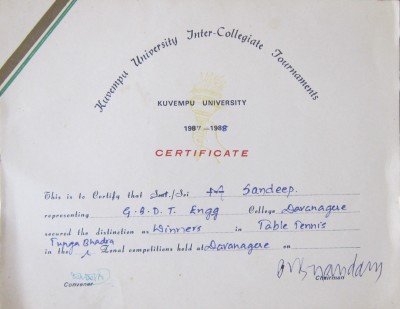 Kuvempu University Inter-Collegiate Tournaments
KUVEMPU UNIVERSITY
1987-1988
CERTIFICATE
This is to Certify that Smt./Sri Sandeep.
representing G.B.D.T. Engg College Davanagere
secured the distinction as Winners in Table Tennis
Tunga Bhadra
in the Zonal competitions held at Davanagere on
Convener
Chairman